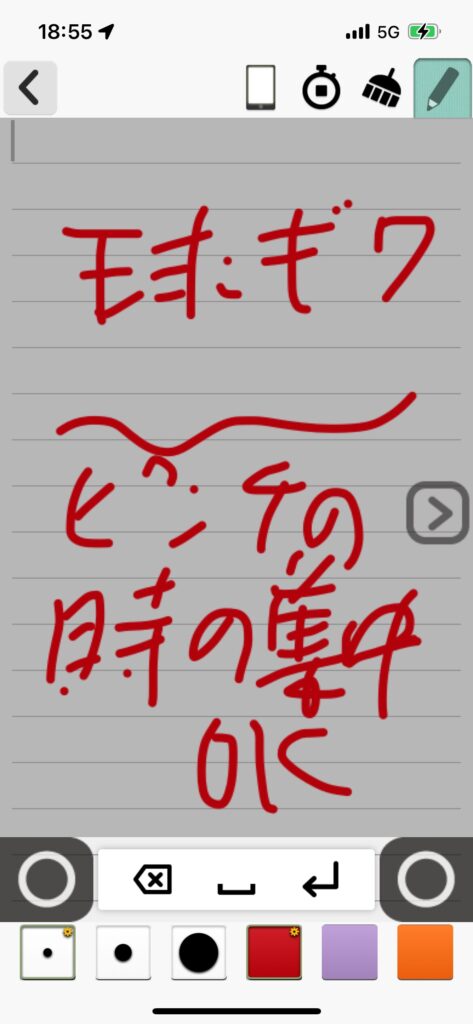 18:55 5G
球ギワ
ピンチの
時の集中
OK